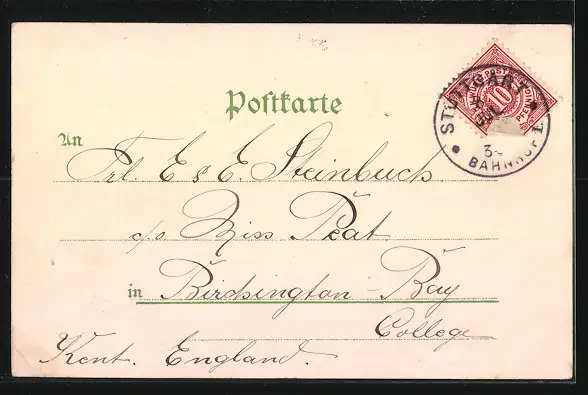 Postkarte
STUTTGART
10
PFENNIG
BAHNHOF 1
An
Frl. E & E. Steinbuch
c/o Miss Peat.
in Birchington - Bay
College
Kent. England.